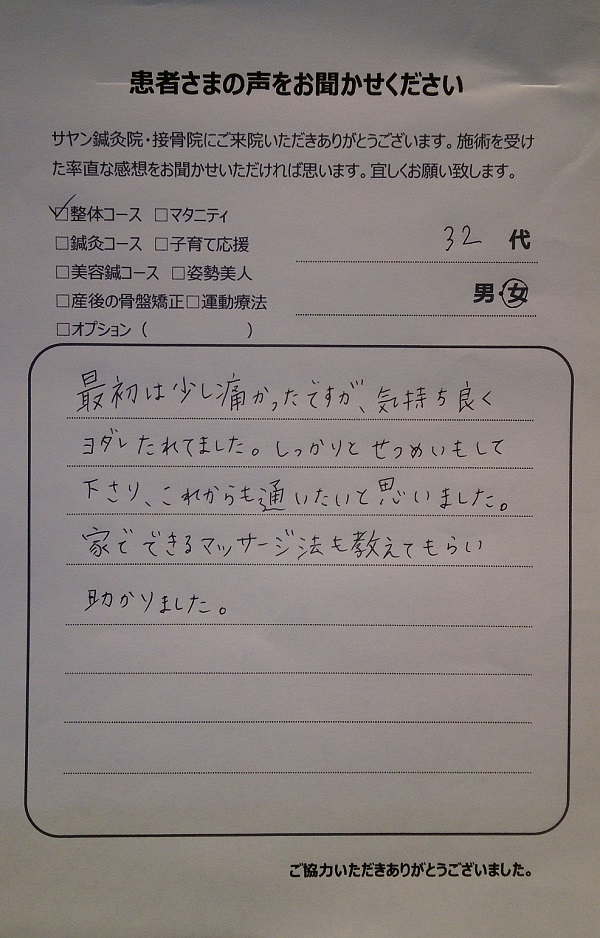 患者さまの声をお聞かせください
サヤン鍼灸院・接骨院にご来院いただきありがとうございます。施術を受け
た率直な感想をお聞かせいただければ思います。宜しくお願い致します。
☑整体コース □マタニティ
□鍼灸コース □子育て応援
□美容鍼コース □姿勢美人
□産後の骨盤矯正□運動療法
□オプション（　　　　　）
32 代
男・女
最初は少し痛かったですが、気持ち良く
ヨダレたれてました。しっかりとせつめいもして
下さり、これからも通いたいと思いました。
家でできるマッサージ法も教えてもらい
助かりました。
ご協力いただきありがとうございました。